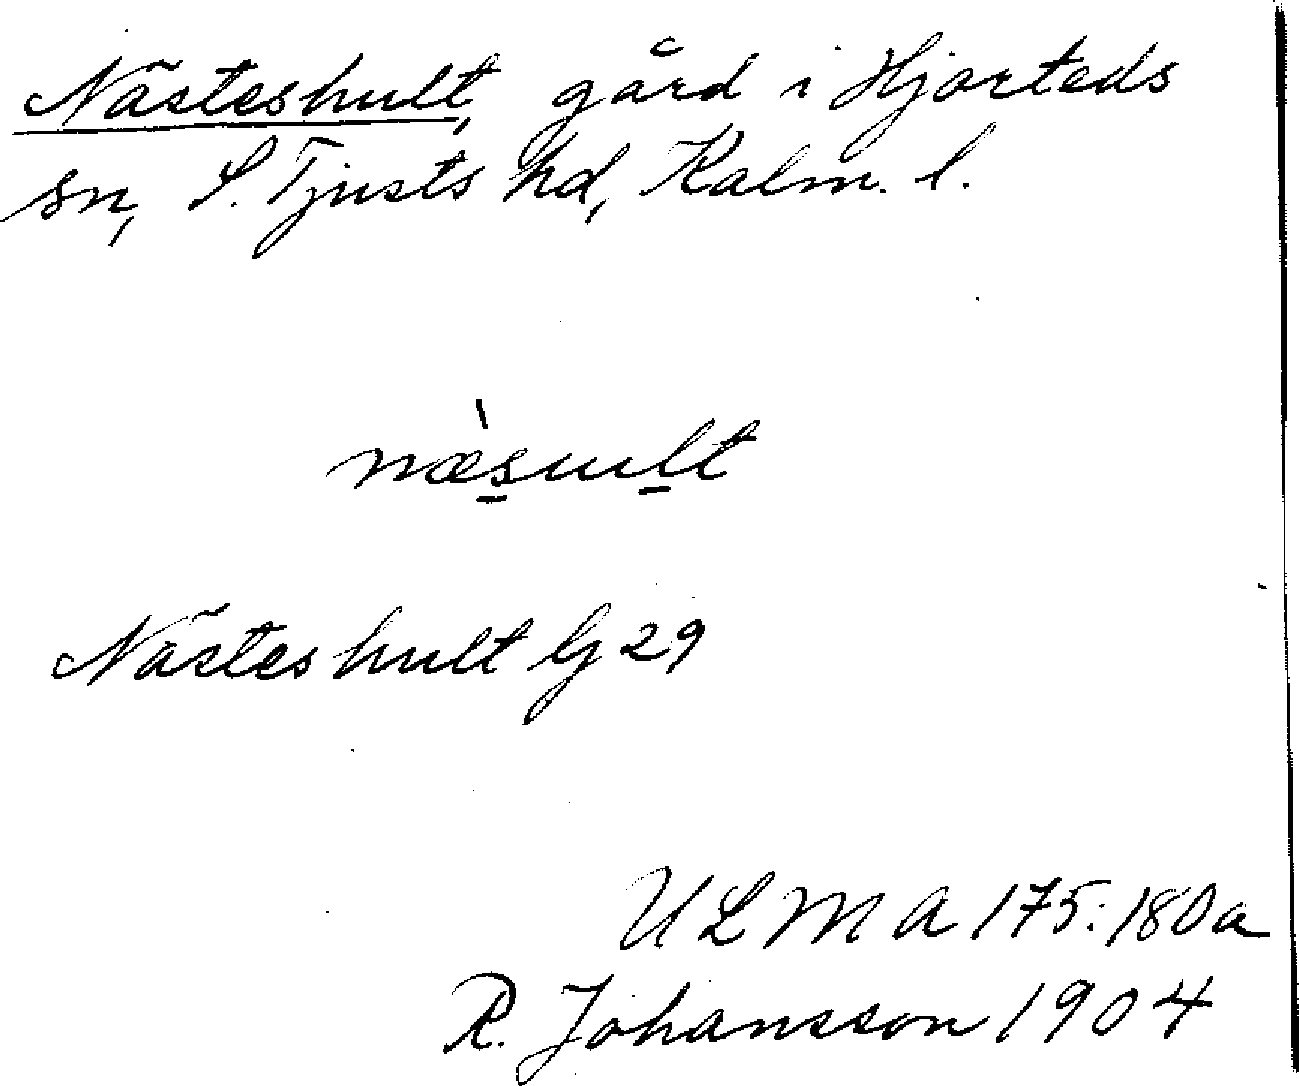 Nästeshult, gård i Hjorteds
sn, S. Tjusts hd, Kalm. l.
næ̀s̠ul̠t
Nästeshult G 29
ULMA 175:180a
R. Johansson 1904